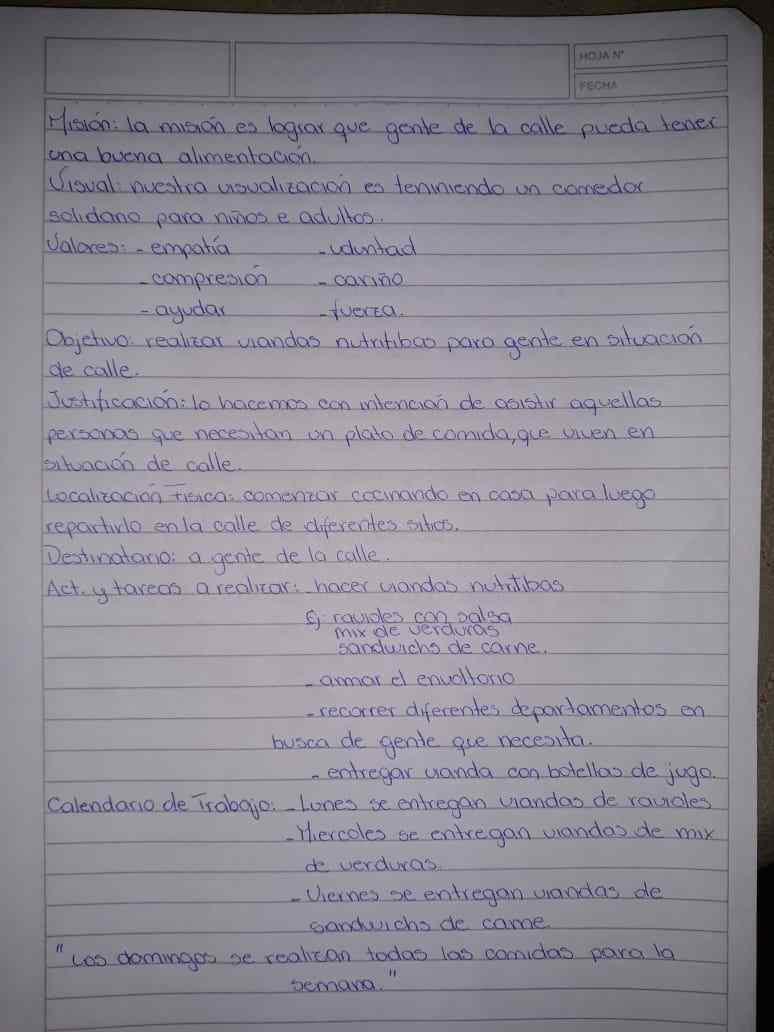 HOJA N°
FECHA
Misión: la misión es lograr que gente de la calle pueda tener
una buena alimentación.
Visual: nuestra visualización es teniniendo un comedor
solidario para niños e adultos.
Valores: - empatía - voluntad
- compresión - cariño
- ayudar - fuerza.
Objetivo: realizar viandas nutritibas para gente en situación
de calle.
Justificación: lo hacemos con intención de asistir aquellas
personas que necesitan un plato de comida, que viven en
situación de calle.
Localización Física: comenzar cocinando en casa para luego
repartirlo en la calle de diferentes sitios.
Destinatario: a gente de la calle.
Act. y tareas a realizar: - hacer viandas nutritibas
Ej: ravioles con salsa
mix de verduras
sandwichs de carne.
- armar el envoltorio
- recorrer diferentes departamentos en
busca de gente que necesita.
- entregar vianda con botellas de jugo.
Calendario de Trabajo: - Lunes se entregan viandas de ravioles
- Miercoles se entregan viandas de mix
de verduras.
- Viernes se entregan viandas de
sandwichs de carne
"Los domingos se realizan todas las comidas para la
semana."